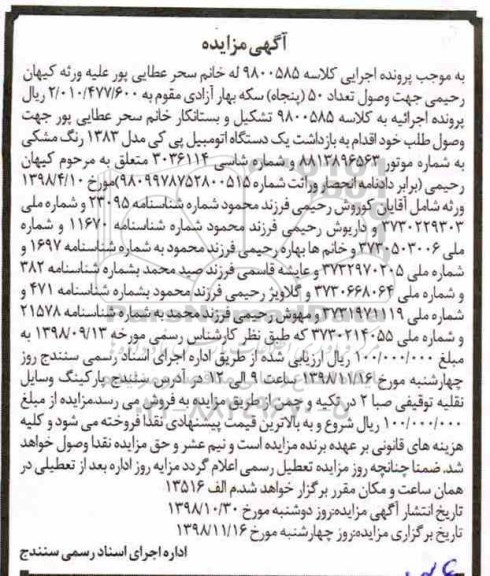 آگهی مزایده
به موجب پرونده اجرایی کلاسه ۹۸۰۰۵۸۵ له خانم سحر عطایی پور علیه ورثه کیهان
رحیمی جهت وصول تعداد ۵۰ (پنجاه) سکه بهار آزادی مقوم به ۲/۰۱۰/۴۷۷/۶۰۰ ریال
پرونده اجرائیه به کلاسه ۹۸۰۰۵۸۵ تشکیل و بستانکار خانم سحر عطایی پور جهت
وصول طلب خود اقدام به بازداشت یک دستگاه اتومبیل پی کی مدل ۱۳۸۳ رنگ مشکی
به شماره موتور ۸۸۱۳۸۹۶۵۶۳ و شماره شاسی ۳۰۳۶۱۱۴ متعلق به مرحوم کیهان
رحیمی (برابر دادنامه انحصار وراثت شماره ۹۸۰۹۹۷۸۷۵۲۸۰۰۵۱۵)مورخ ۱۳۹۸/۴/۱۰
ورثه شامل آقایان کوروش رحیمی فرزند محمود شماره شناسنامه ۲۳۰۹۵ و شماره ملی
۳۷۳۰۲۲۹۳۰۳ و داریوش رحیمی فرزند محمود شماره شناسنامه ۱۱۶۷۰ و شماره
ملی ۳۷۳۰۵۰۳۰۰۶ و خانم ها بهاره رحیمی فرزند محمود به شماره شناسنامه ۱۶۹۷ و
شماره ملی ۳۷۳۲۹۷۰۲۰۵ و عایشه قاسمی فرزند صید محمد بشماره شناسنامه ۳۸۲
و شماره ملی ۳۷۳۰۶۶۸۰۶۴ و گلاویز رحیمی فرزند محمود بشماره شناسنامه ۴۷۱ و
شماره ملی ۳۷۳۱۹۷۱۱۱۹ و مهوش رحیمی فرزند محمد به شماره شناسنامه ۲۱۵۷۸
و شماره ملی ۳۷۳۰۲۱۴۰۵۵ که طبق نظر کارشناس رسمی مورخه ۱۳۹۸/۰۹/۱۳ به
مبلغ ۱۰۰/۰۰۰/۰۰۰ ریال ارزیابی شده از طریق اداره اجرای اسناد رسمی سنندج روز
چهارشنبه مورخ ۱۳۹۸/۱۱/۱۶ ساعت ۹ الی ۱۲ در آدرس سنندج پارکینگ وسایل
نقلیه توقیفی صبا ۲ در تکیه و چمن از طریق مزایده به فروش می رسد.مزایده از مبلغ
۱۰۰/۰۰۰/۰۰۰ ریال شروع و به بالاترین قیمت پیشنهادی نقدا فروخته می شود و کلیه
هزینه های قانونی بر عهده برنده مزایده است و نیم عشر و حق مزایده نقدا وصول خواهد
شد. ضمنا چنانچه روز مزایده تعطیل رسمی اعلام گردد مزایه روز اداره بعد از تعطیلی در
همان ساعت و مکان مقرر برگزار خواهد شد.م الف ۱۳۵۱۶
تاریخ انتشار آگهی مزایده:روز دوشنبه مورخ ۱۳۹۸/۱۰/۳۰
تاریخ برگزاری مزایده:روز چهارشنبه مورخ ۱۳۹۸/۱۱/۱۶
اداره اجرای اسناد رسمی سنندج